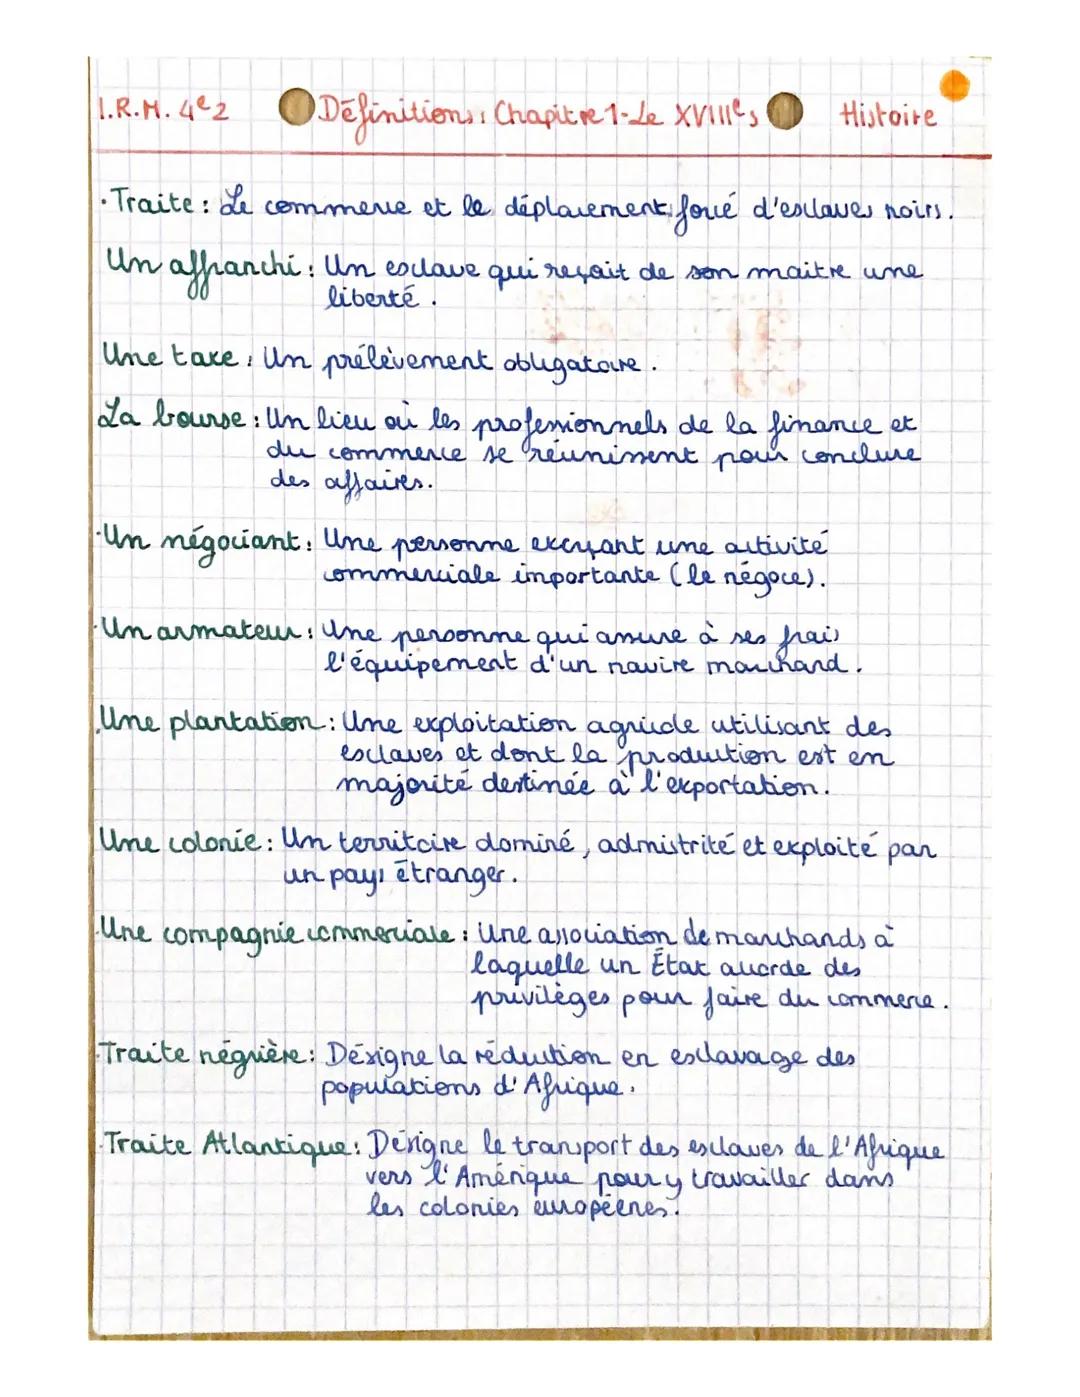 I.R.M. 4e2 Définitions: Chapitre 1-Le XVIIIes Histoire
·Traite: Le commerce et le déplacement forcé d'esclaves noirs.
Un affranchi: Un esclave qui reçoit de son maitre une
liberté.
Une taxe: Un prélèvement obligatoire.
La bourse: Un lieu où les professionnels de la finance et
du commerce se réunissent pour conclure
des affaires.
·Un négociant: Une personne exerçant une activité
commerciale importante (le négoce).
·Un armateur: Une personne qui assure à ses frais
l'équipement d'un navire marchand.
·Une plantation: Une exploitation agricole utilisant des
esclaves et dont la production est en
majorité destinée à l'exportation.
Une colonie: Un territoire dominé, admistrité et exploité par
un pays étranger.
·Une compagnie commerciale: Une association de marchands à
laquelle un État accorde des
privilèges pour faire du commerce.
·Traite négrière: Désigne la réduction en esclavage des
populations d'Afrique.
·Traite Atlantique: Désigne le transport des esclaves de l'Afrique
vers l'Amérique pour y travailler dans
les colonies européenes.